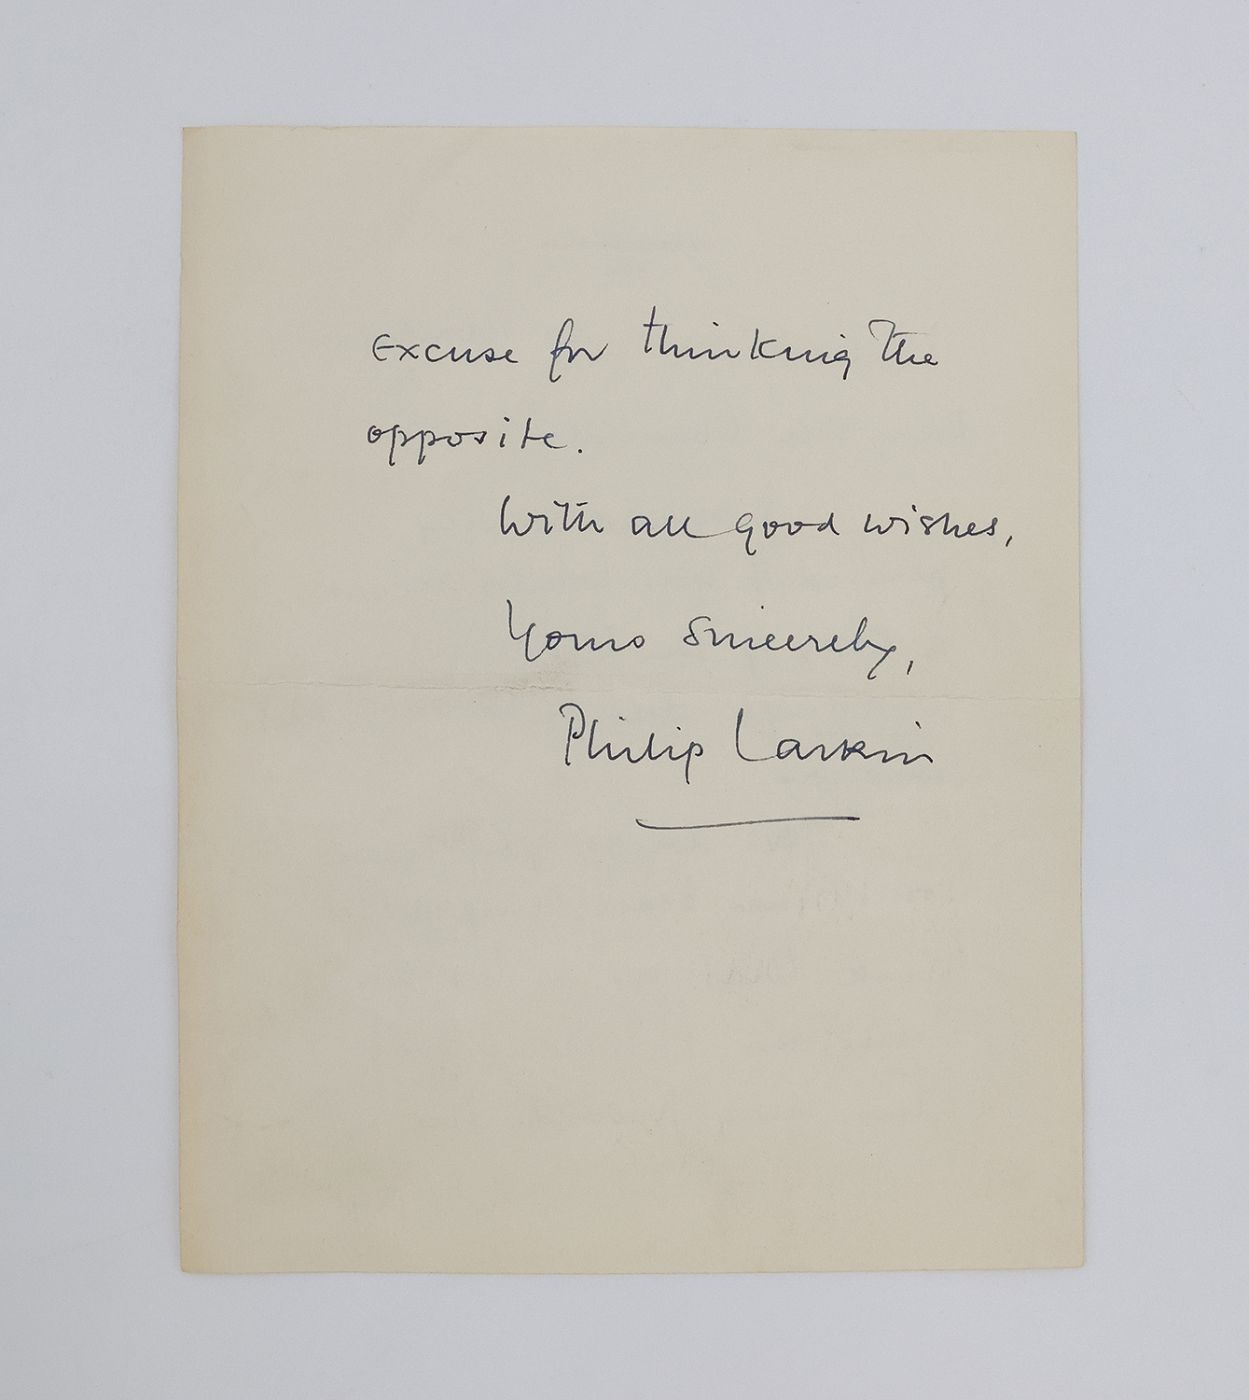 excuse for thinking the
opposite.
With all good wishes,
Yours sincerely,
Philip Larkin